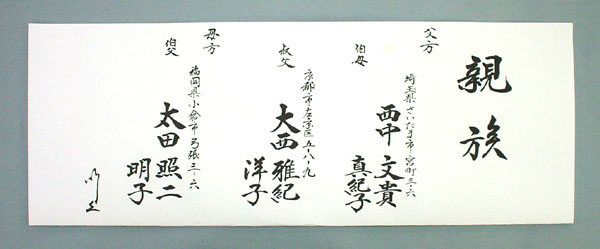 親族
父方
埼玉県さいたま市宮町三・六
伯母
西中 文貴
真紀子
京都市左京区五・八・九
叔父
大西 雅紀
洋子
母方
福岡県小倉市弓張三・六
伯父
太田 照二
明子
以上